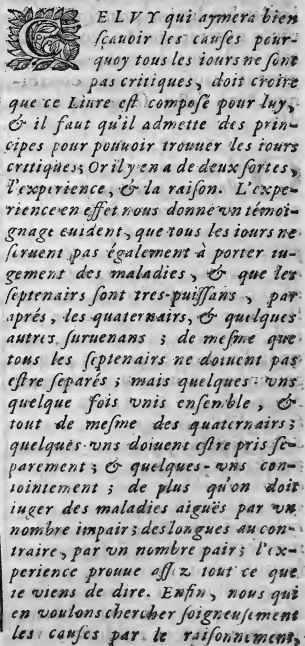 CELVY qui aymera bien
sçauoir les causes pour-
quoy tous les iours ne sont
pas critiques, doit croire
que ce Liure est composé pour luy,
& il faut qu'il admette des prin-
cipes pour pouuoir trouuer les iours
critiques; Or il y en a de deux sortes,
l'experience, & la raison. L'expe-
rience en effet nous donne vn témoi-
gnage euident, que tous les iours ne
seruent pas également à porter iu-
gement des maladies, & que les
septenairs sont tres-puissans, par
aprés, les quaternairs, & quelques
autres suruenans; de mesme que
tous les septenairs ne doiuent pas
estre separés; mais quelques-vns
quelque fois vnis ensemble, &
tout de mesme des quaternairs;
quelques-vns doiuent estre pris se-
parement; & quelques-vns con-
iointement; de plus qu'on doit
iuger des maladies aiguës par vn
nombre impair; des longues au con-
traire, par vn nombre pair; l'ex-
perience prouue assez tout ce que
ie viens de dire. Enfin, nous qui
en voulons chercher soigneusement
les causes par le raisonnement,